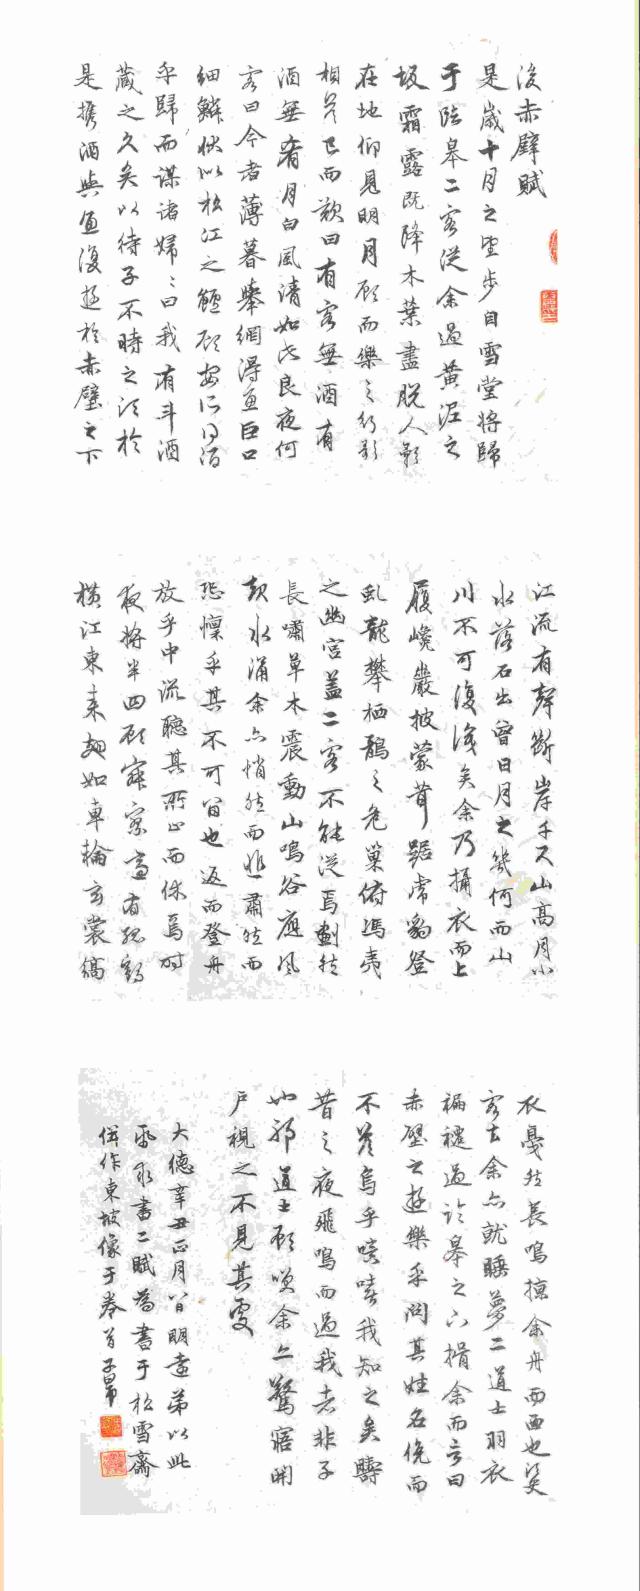 後赤壁賦
是歲十月之望步自雪堂將歸
于臨皋二客從余過黃泥之
坂霜露既降木葉盡脫人影
在地仰見明月顧而樂之行影
相答已而歎曰有客無酒有
酒無肴月白風清如此良夜何
客曰今者薄暮舉網得魚巨口
細鱗狀似松江之鱸顧安所得酒
乎歸而謀諸婦婦曰我有斗酒
藏之久矣以待子不時之須於
是攜酒與魚復遊於赤壁之下
江流有聲斷岸千尺山高月小
水落石出曾日月之幾何而山
川不可復識矣余乃攝衣而上
履巉巖披蒙茸踞虎豹登
虬龍攀栖鶻之危巢俯馮夷
之幽宮蓋二客不能從焉劃然
長嘯草木震動山鳴谷應風
起水涌余亦悄然而悲肅然而
恐懍乎其不可留也返而登舟
放乎中流聽其所止而休焉時
夜將半四顧寂寥適有孤鶴
橫江東來翅如車輪玄裳縞
衣戛然長鳴掠余舟而西也須臾
客去余亦就睡夢二道士羽衣
褊褼過臨皋之下揖余而言曰
赤壁之遊樂乎問其姓名俛而
不答烏乎噫嘻我知之矣疇
昔之夜飛鳴而過我者非子
也耶道士顧笑余亦驚寤開
戶視之不見其處
大德辛丑正月八日明遠弟以此
紙求書二賦為書于松雪齋
併作東坡像于卷首子昂